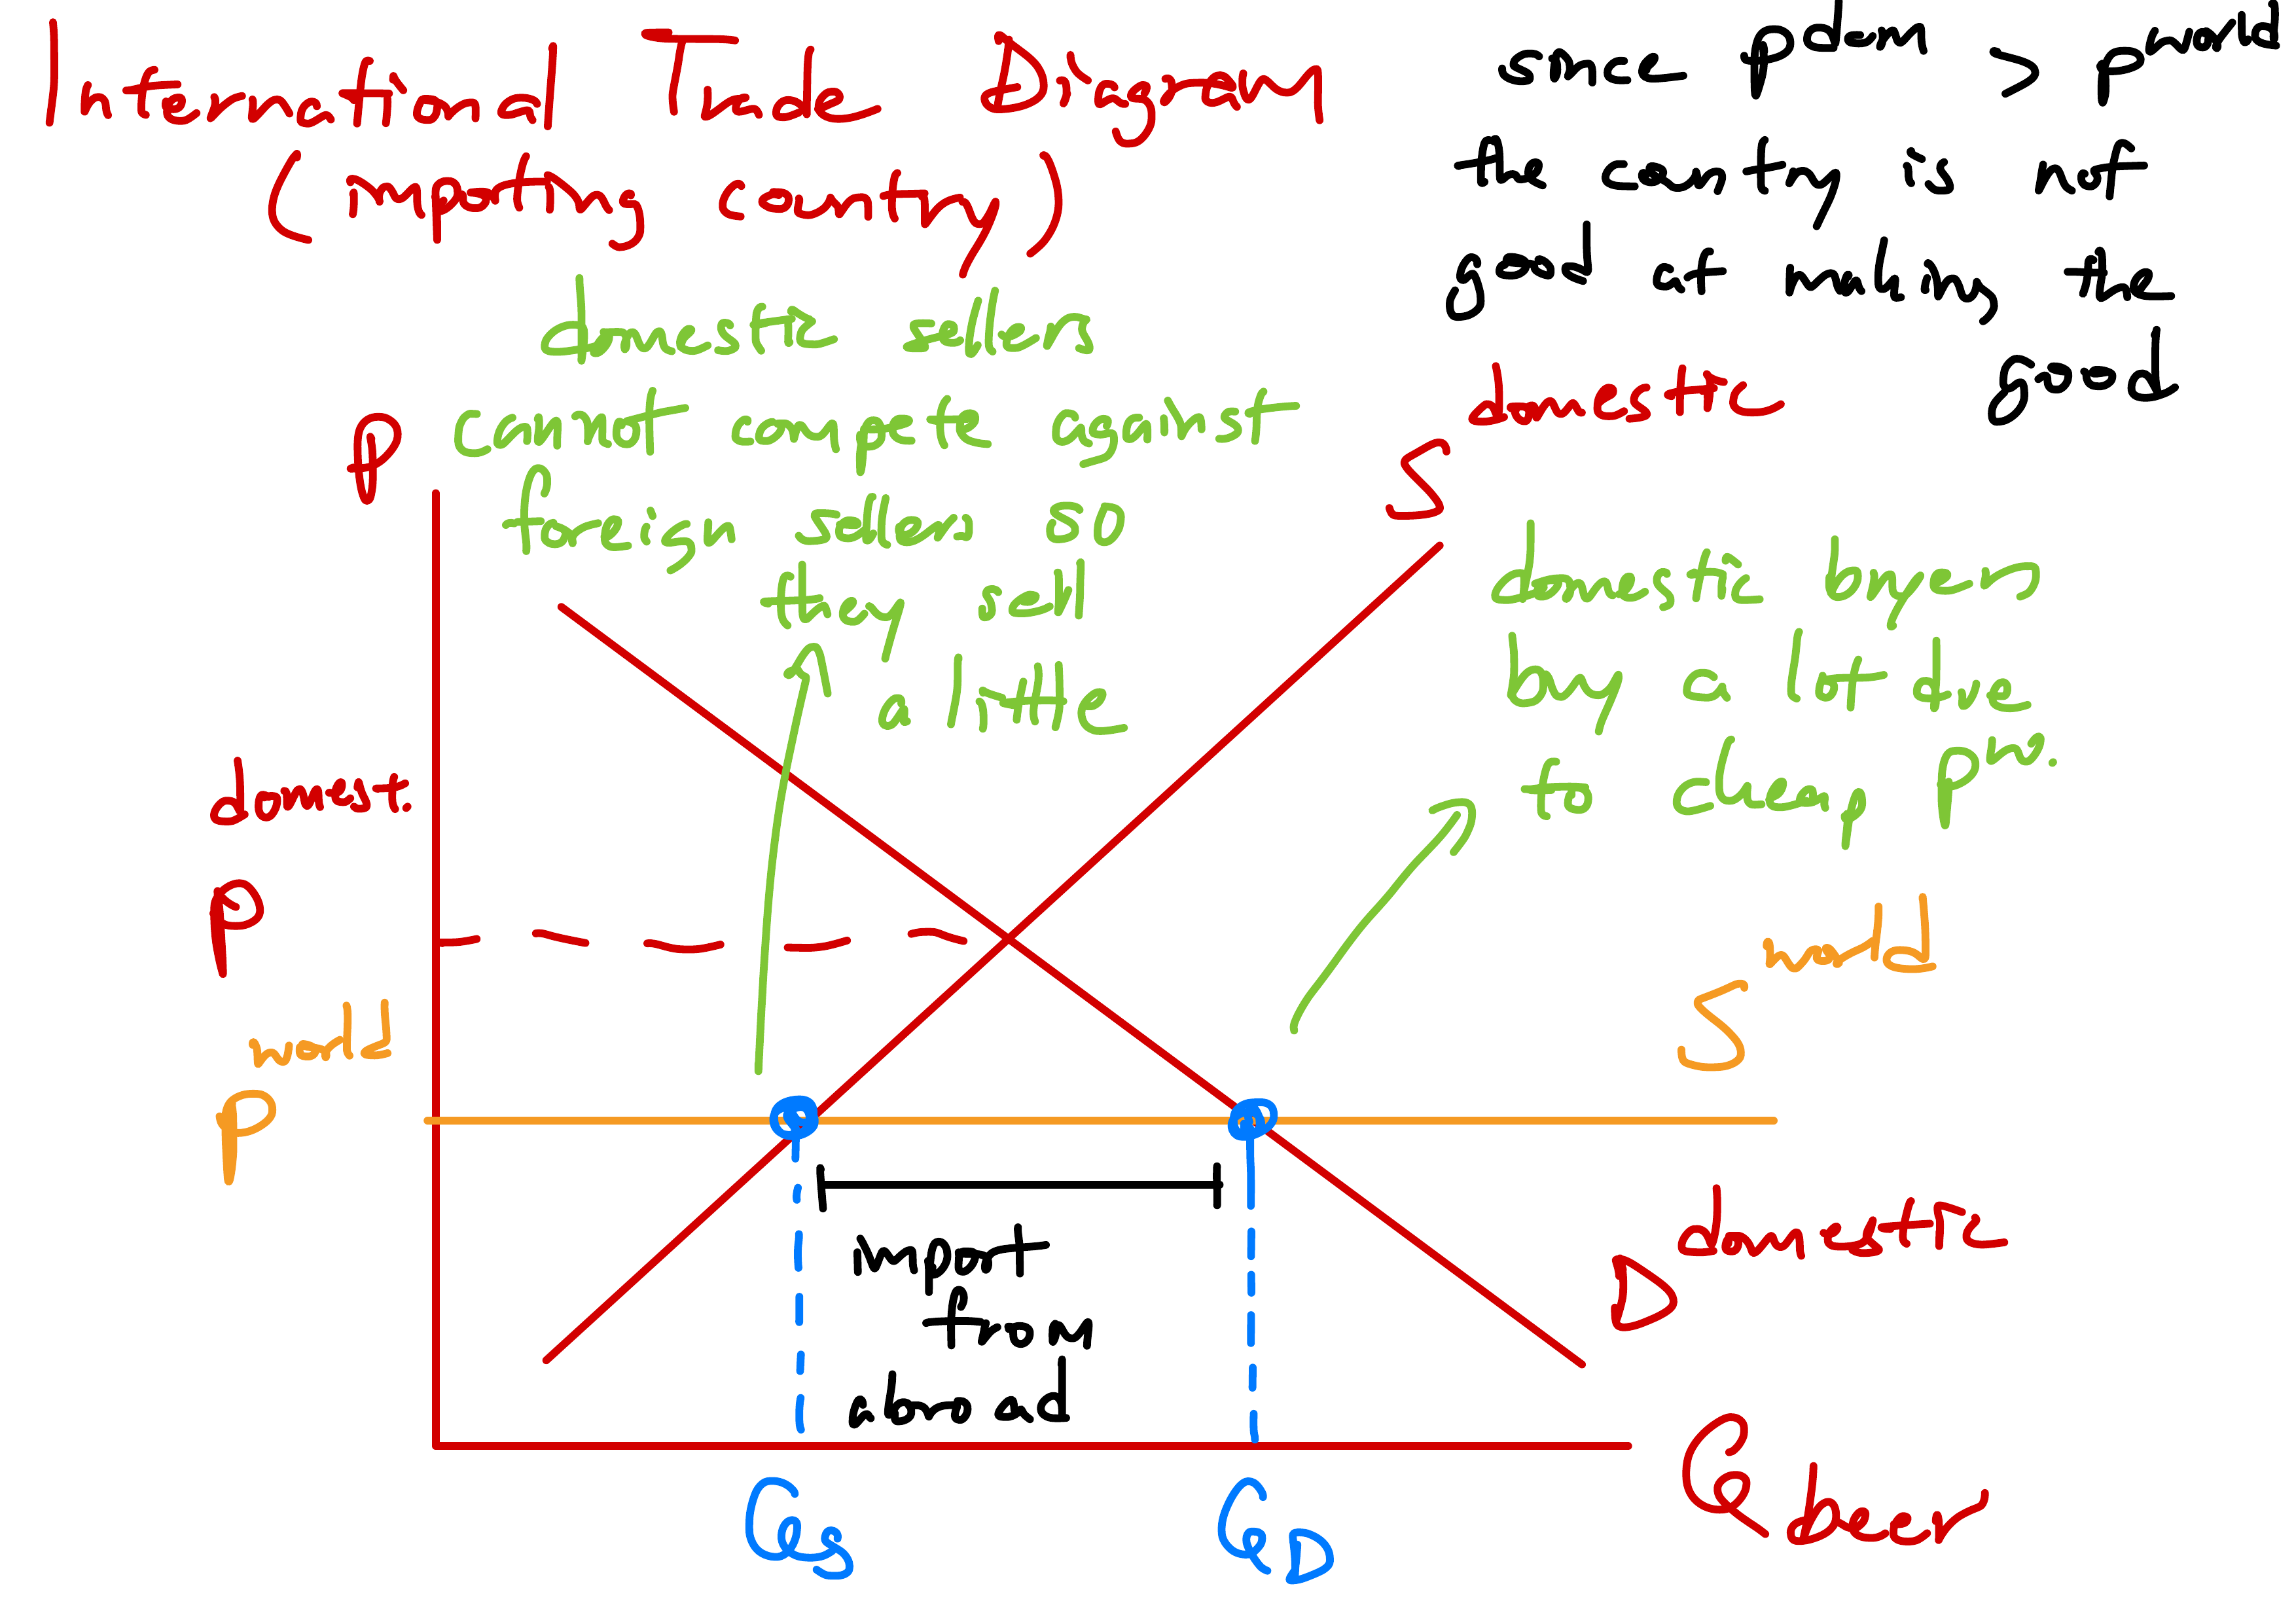 International Trade Diagram
(importing country)
since P dom > P world
the country is not
good at making the
good
domestic sellers
cannot compete against
foreign sellers so
they sell
a little
P
S domestic
domestic buyers
buy a lot due
to cheap P w.
P domest.
P world
S world
import
from
abroad
D domestic
Q beer
Q S
Q D